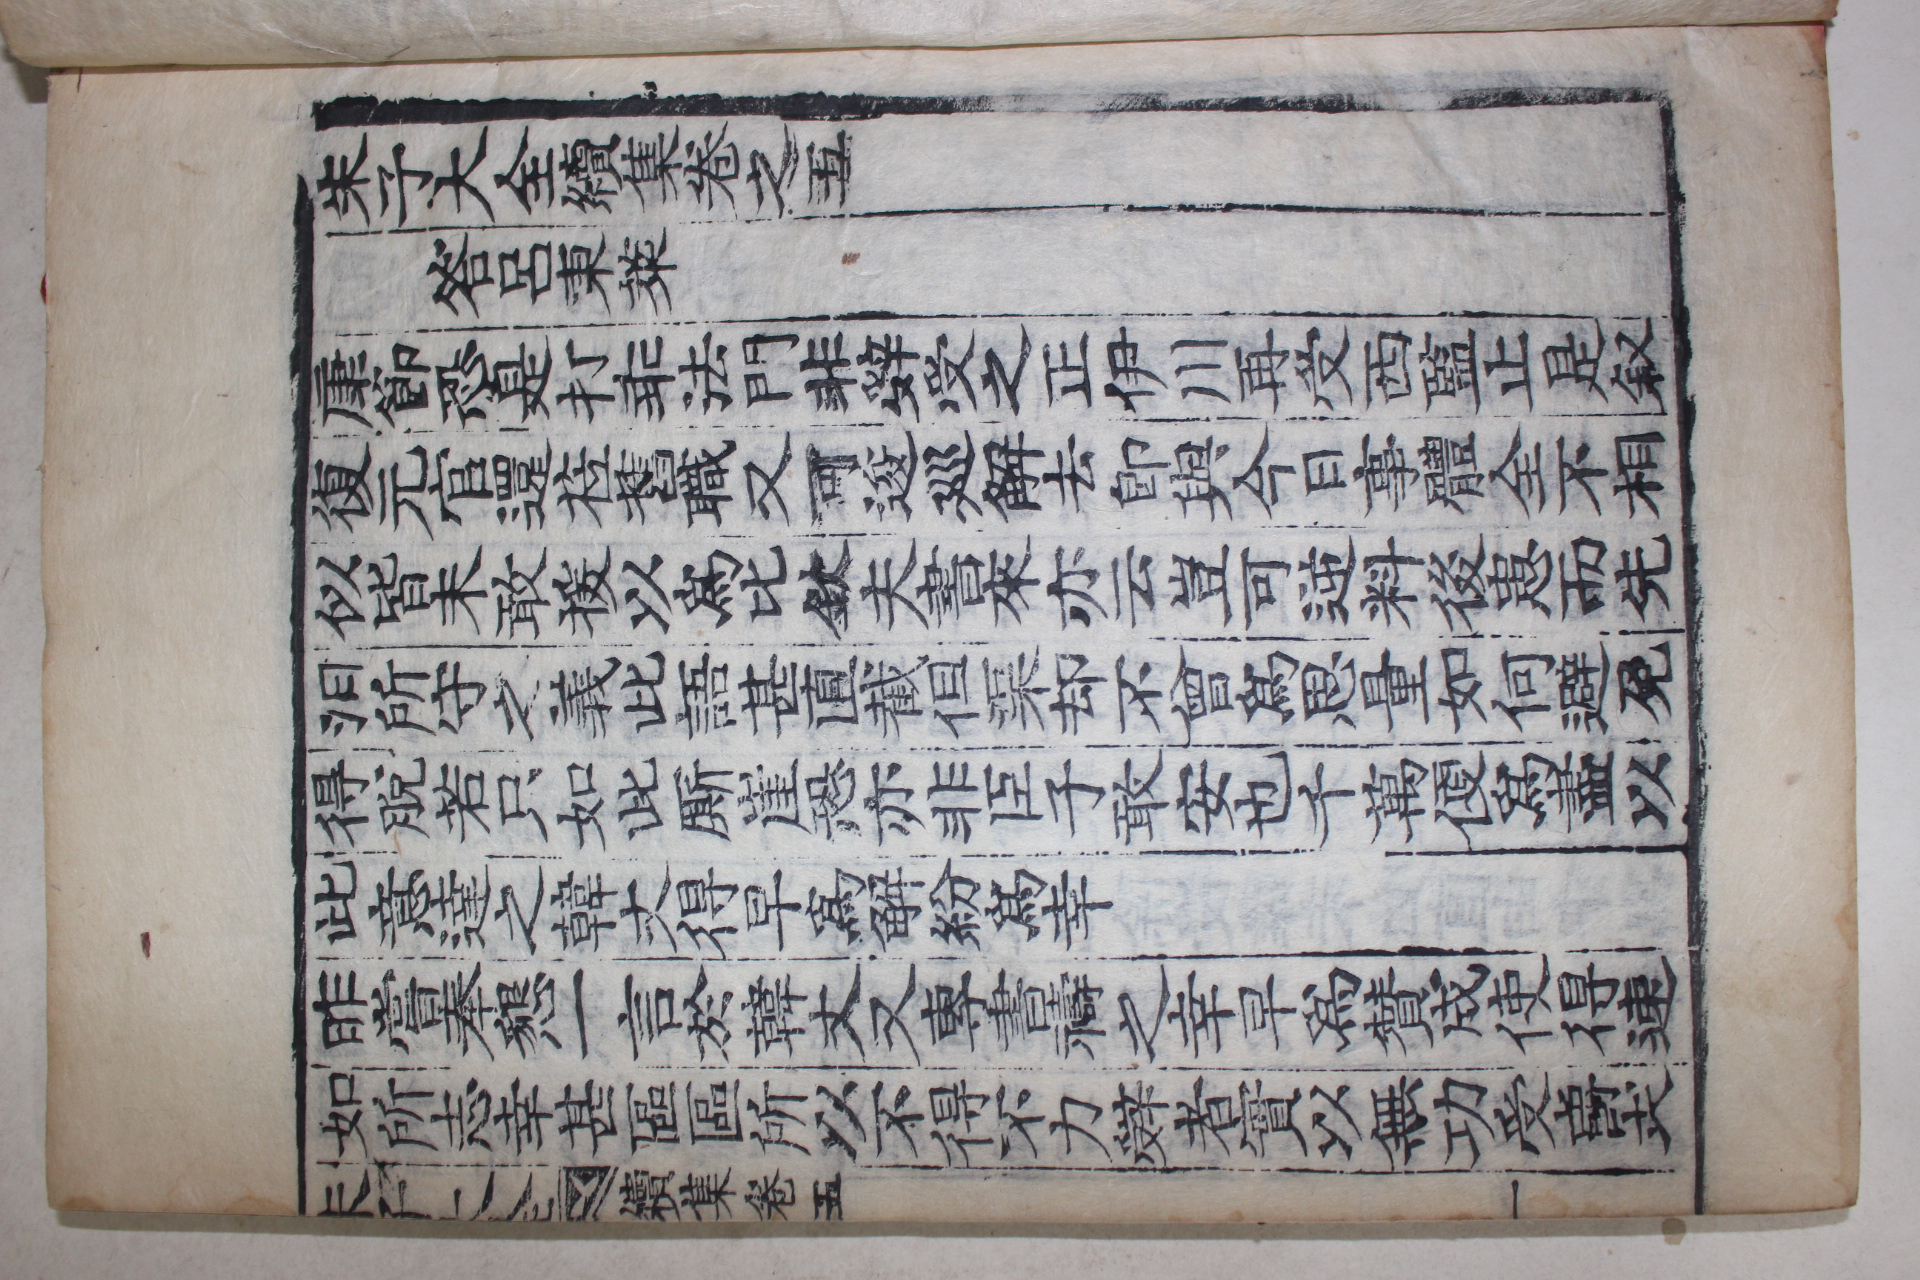 朱子大全續集卷之五
答呂東萊
康節恐是打乖法門非辤受之正伊川再受西監止是叙
復元官還莅舊職又可逡廵解去卽與今日事體全不相
似皆未敢援以爲比欽夫書來亦云豈可逆料後患而先
汨所守之義此語甚直截但渠却不曾爲思量如何避免
得脫若只如此厮崖恐亦非臣子敢安也千萬便爲盡以
此意達之韓丈得早爲解紛爲幸
昨嘗奉懇一言於韓丈又專書禱之幸早爲賛成使得速
如所志幸甚區區所以不得不力辤者實以無功受賞
朱子大全
續集卷五
一